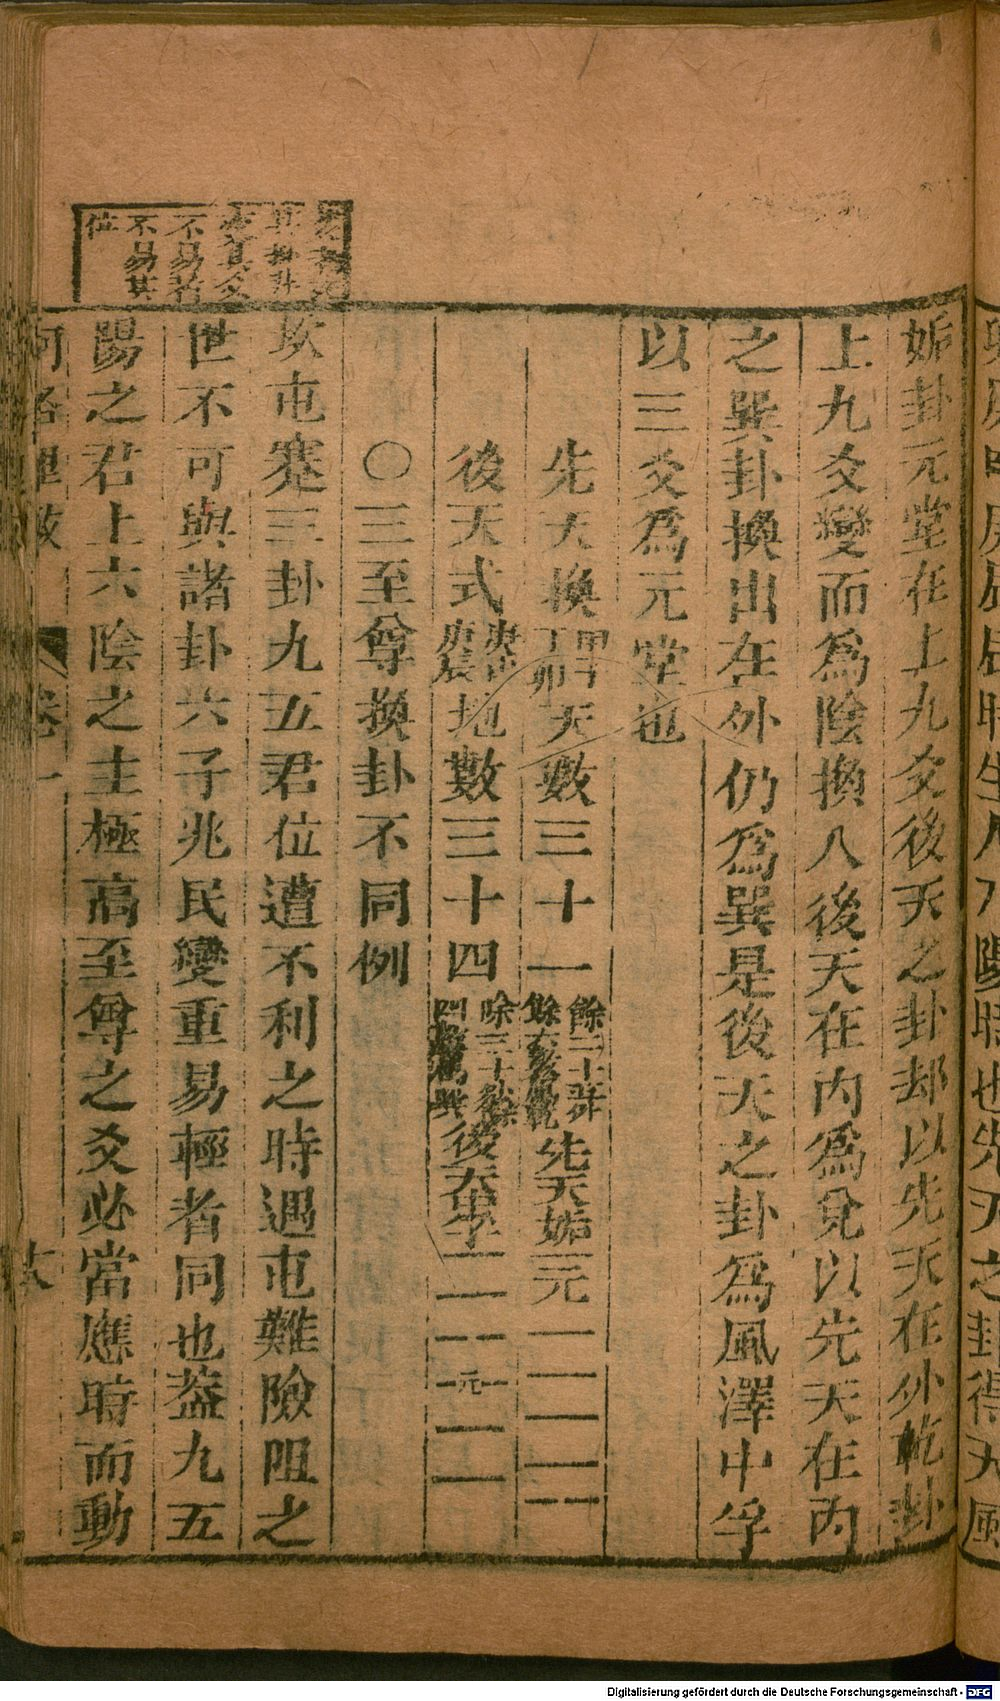 姤卦元堂在上九爻後天之卦却以先天在外乾卦
上九爻變而為陰換入後天在內為兌以先天在內
之巽卦換出在外仍為巽是後天之卦為風澤中孚
以三爻為元堂也
先天換甲午丁卯天數三十一餘二十 先天姤元
後天式庚 庚辰地數三十四除三十 後天中孚元
〇三至尊換卦不同例
坎屯蹇三卦九五君位遭不利之時遇屯難險阻之
世不可與諸卦六子兆民變重易輕者同也蓋九五
陽之君上六陰之主極高至尊之爻必當應時而動
不易者
不易其
位
河洛理數 卷一
Digitalisierung gefördert durch die Deutsche Forschungsgemeinschaft - DFG